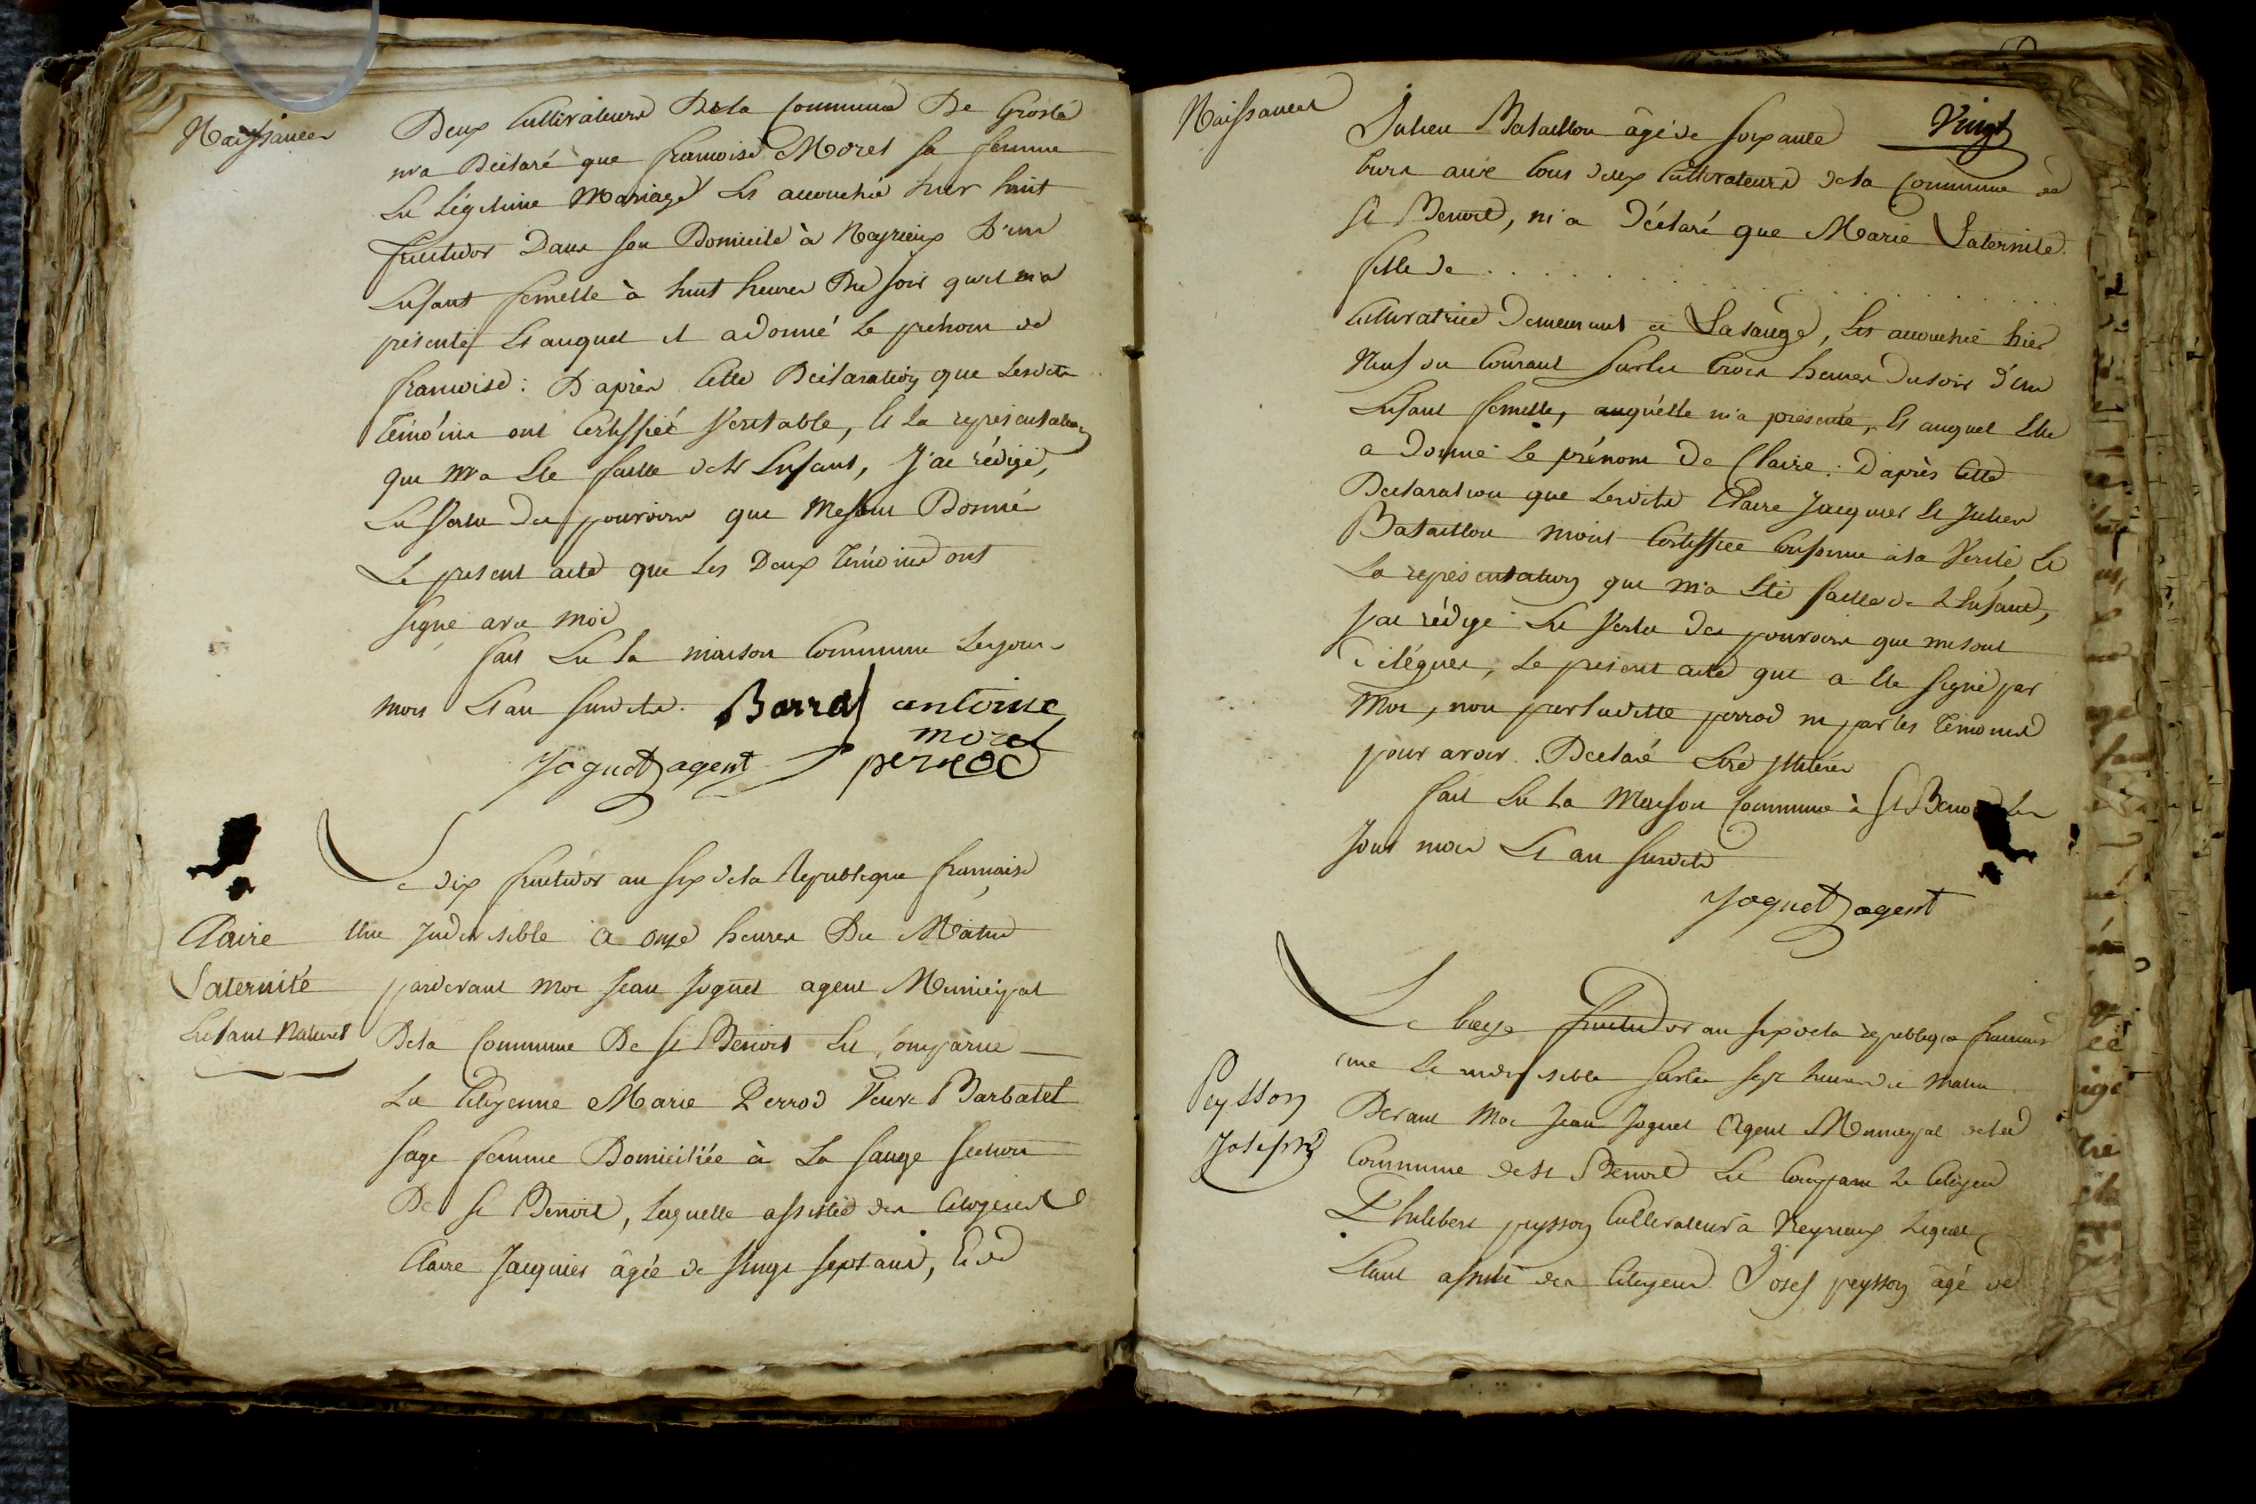 Naissances
Deux Cultivateurs De la Commune De Groslé
m'a Déclaré que francoise Moret sa femme
En Légitime Mariage Est accouchée hier huit
fructidor Dans son Domicile à Neyrieux D'un
Enfant femelle à huit heures Du soir qu'il m'a
présenté Et auquel il a donné Le prénom de
francoise : D'après Cette Déclaration que Lesdits
Témoins ont Certiffiés Veritable, Et La représentation
que m'a Ete faitte de L'Enfant, J'ai rédigé,
En Vertu Des pouvoirs que me sont Donnés
Le present acte que Les Deux Témoins ont
signé avec moi
fait En la maison Commune Les jour
mois Et an susdits. Barral antoine
morel
Joguet agent perrod
Le dix fructidor an six de la Republique francaise
Claire Une Indivisible à onze heures Du Matin
Saternité pardevant moi Jean Joguet agent Municipal
Enfant Naturel De la Commune De St Benoit Est Comparue
La Citoyenne Marie Perrod Veuve Barbatet
sage femme Domiciliée à La Sauge section
De St Benoit, Laquelle assistée des Citoyens
Claire Jacquier âgée de Vingt sept ans, Et de
Naissances
Vingt
Julien Bataillon âgé de soixante
trois ans tous deux Cultivateurs de la Commune de
St Benoit, m'a Déclaré que Marie Saternite
fille de . . . . . . . . . . . . . . . .
Cultivatrice Demeurant à Lasauge, Est accouchée hier
Neuf du Courant sur les trois heures du soir d'un
Enfant femelle, auquelle m'a présenté, Et auquel Elle
a Donné Le prénom De Claire : D'après Cette
Declaration que Lesdits Claire Jacquier Et Julien
Bataillon m'ont Certiffiée Conforme à la Verité, Et
La représentation que m'a Eté faitte de L'Enfant,
J'ai rédigé En Vertu Des pouvoirs que me sont
Délégués, Le présent acte qui a Ete signé par
Moi, non par Ladite perrod ni par les Témoins
pour avoir Déclaré Etre Illitérés
fait En La Maison Commune à St Benoit Les
Jour mois Et an susdits
Joguet agent
Le treize fructidor an six de la republique francaise
une Et indivisible sur les sept heures du matin
Peysson Devant Moi Jean Joguet Agent Municipal de la
Joseph Commune de St Benoit Est Comparu Le Citoyen
Philibert peysson Cultivateur à Neyrieux Lequel
Etant assisté des Citoyens Josef peysson âgé de